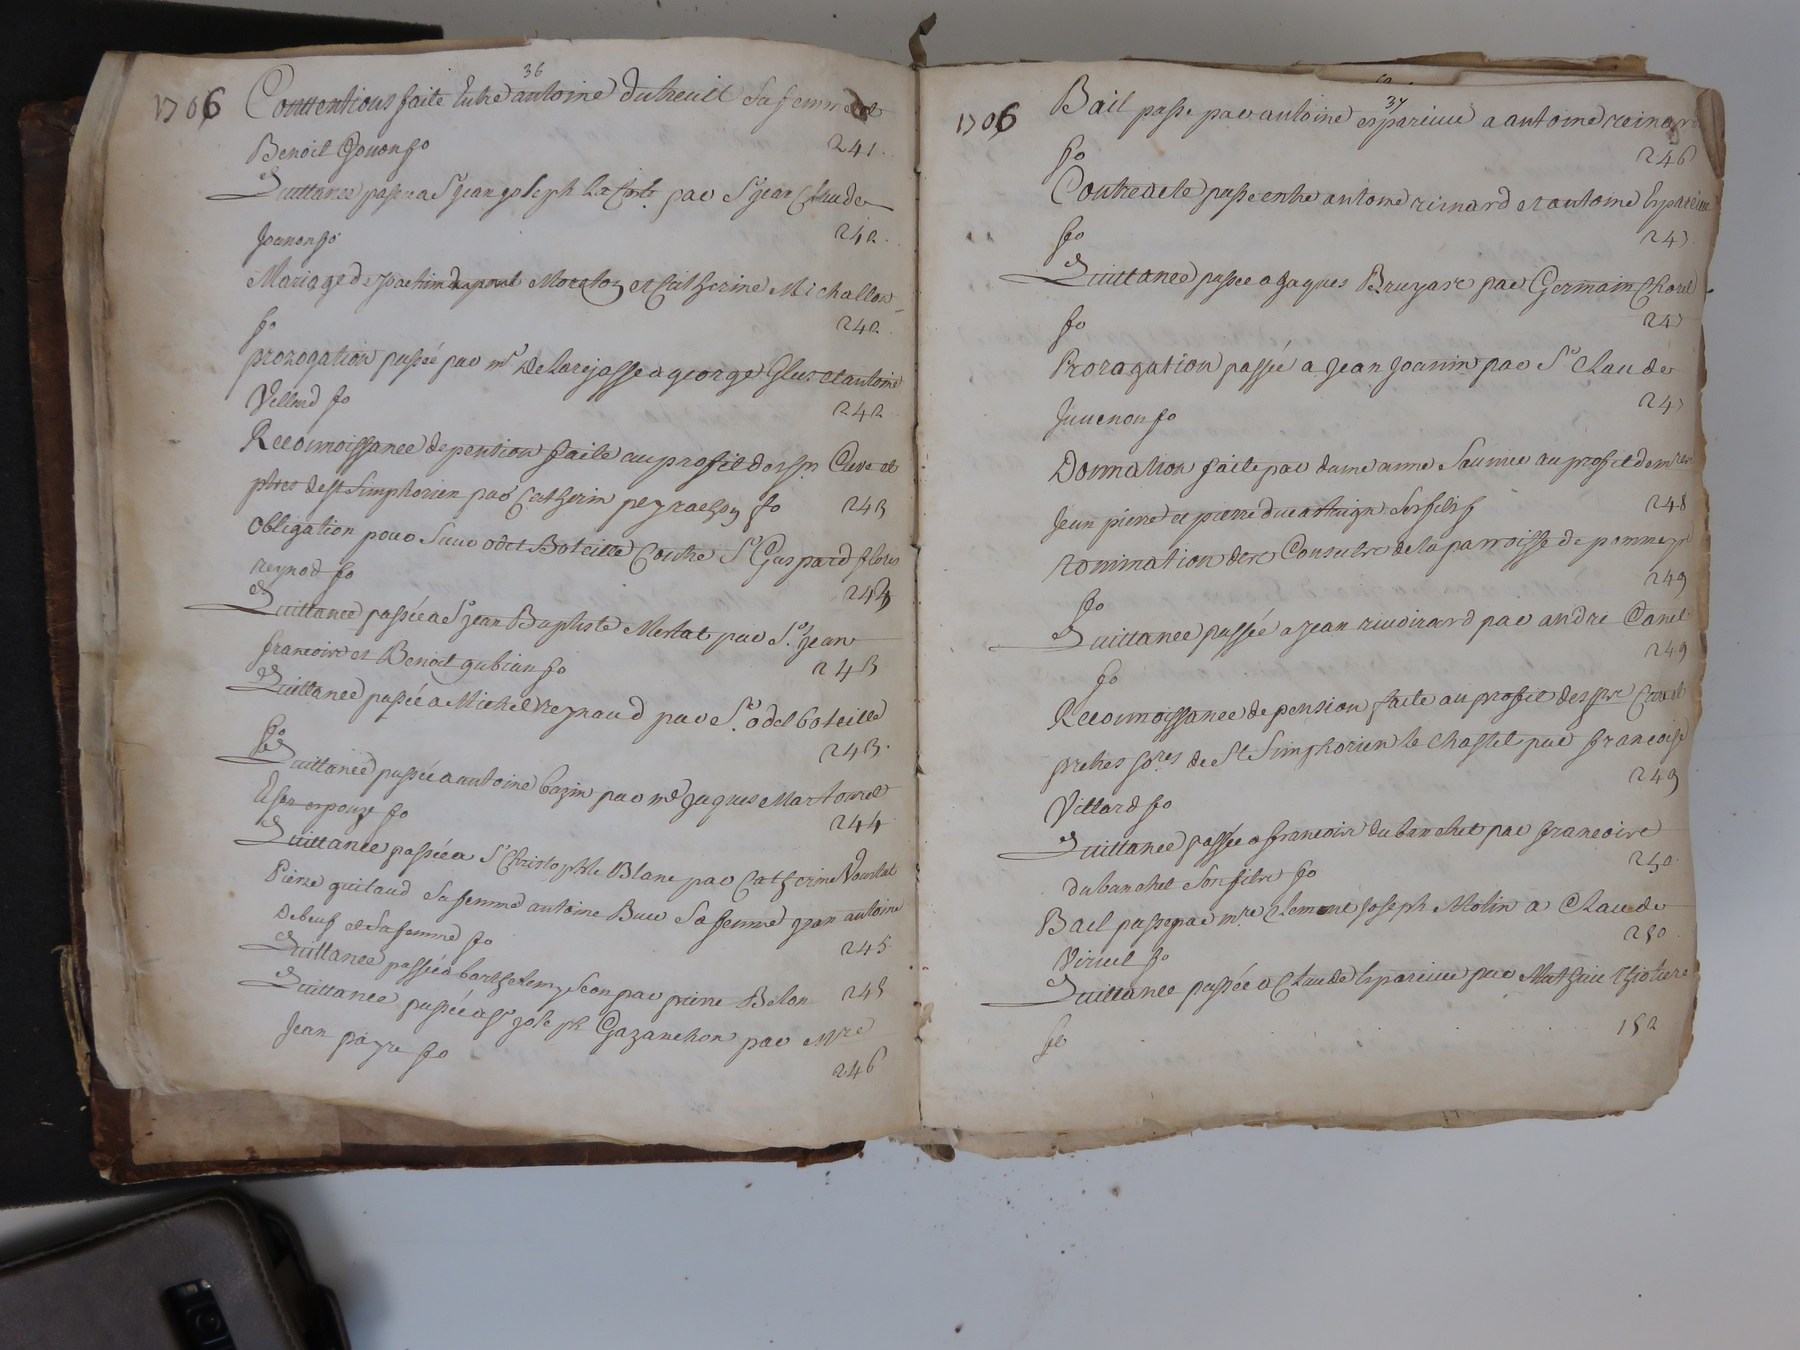 36
1706 Conventions faite Entre antoine dutreuil Sa femme et
Benoit Gouon fo 241.
Quittance passee a Sr jean joseph par Sr jean Claude
Jouanon fo 242.
Mariage de et Catherine Michallon
fo 242.
prorogation passéé par mr Delarejasse a george et antoine
Villard fo 242
Reconnoissance de pention faite au profit de Cure et
pbres de st simphorien par Catherin fo 243
obligation pour Contre Sr Gaspard
reynod fo 243
Quittance passéé a Sr jean Baptiste Merlat par Sr jean
francois et Benoit gubian fo 243
Quittance passéé a Michel reynaud par Sr odet boteille
fo 243.
Quittance passéé a antoine bazin par me jaques
Et son espouze fo 244
Quittance passéé a Sr Christophle Blanc par Catherine
Pierre guilaud Sa femme antoine Sa femme jean antoine
Debeuf et Sa femme fo 245
Quittance passéé a barthelemy par pierre Belon 245
Quittance passéé a Sr joseph Gazanchon par Mre
Jean payre fo 246
37
1706 Bail passe par antoine espareiue a antoine reinard
fo 246
passe entre antoine reinard et antoine Espareiue
fo 247
Quittance passee a Jaques Bruyare par Germain
fo 247
Proragation passéé a Jean Joannin par Sr Claude
Juuenon fo 247
Donnation faite par dame anne au profit de
Jean pierre et pierre Ses fils f 248
nomination des Consulz de la parroisse de pommeys
fo 249
Quittance passéé a jean riuoirard par andre
fo 249
Reconnoissance de pension faite au profit des Cure et
prebres de St Simphorien le Chastel par francoise
Villard fo 249
Quittance passéé a francois dubanchet par francoise
dubanchet Son filz fo 250
Bail passe par mre Clement Joseph Molin a Claude
fo 250
Quittance passéé a Claude Espareiue par Mathieu
fo 152